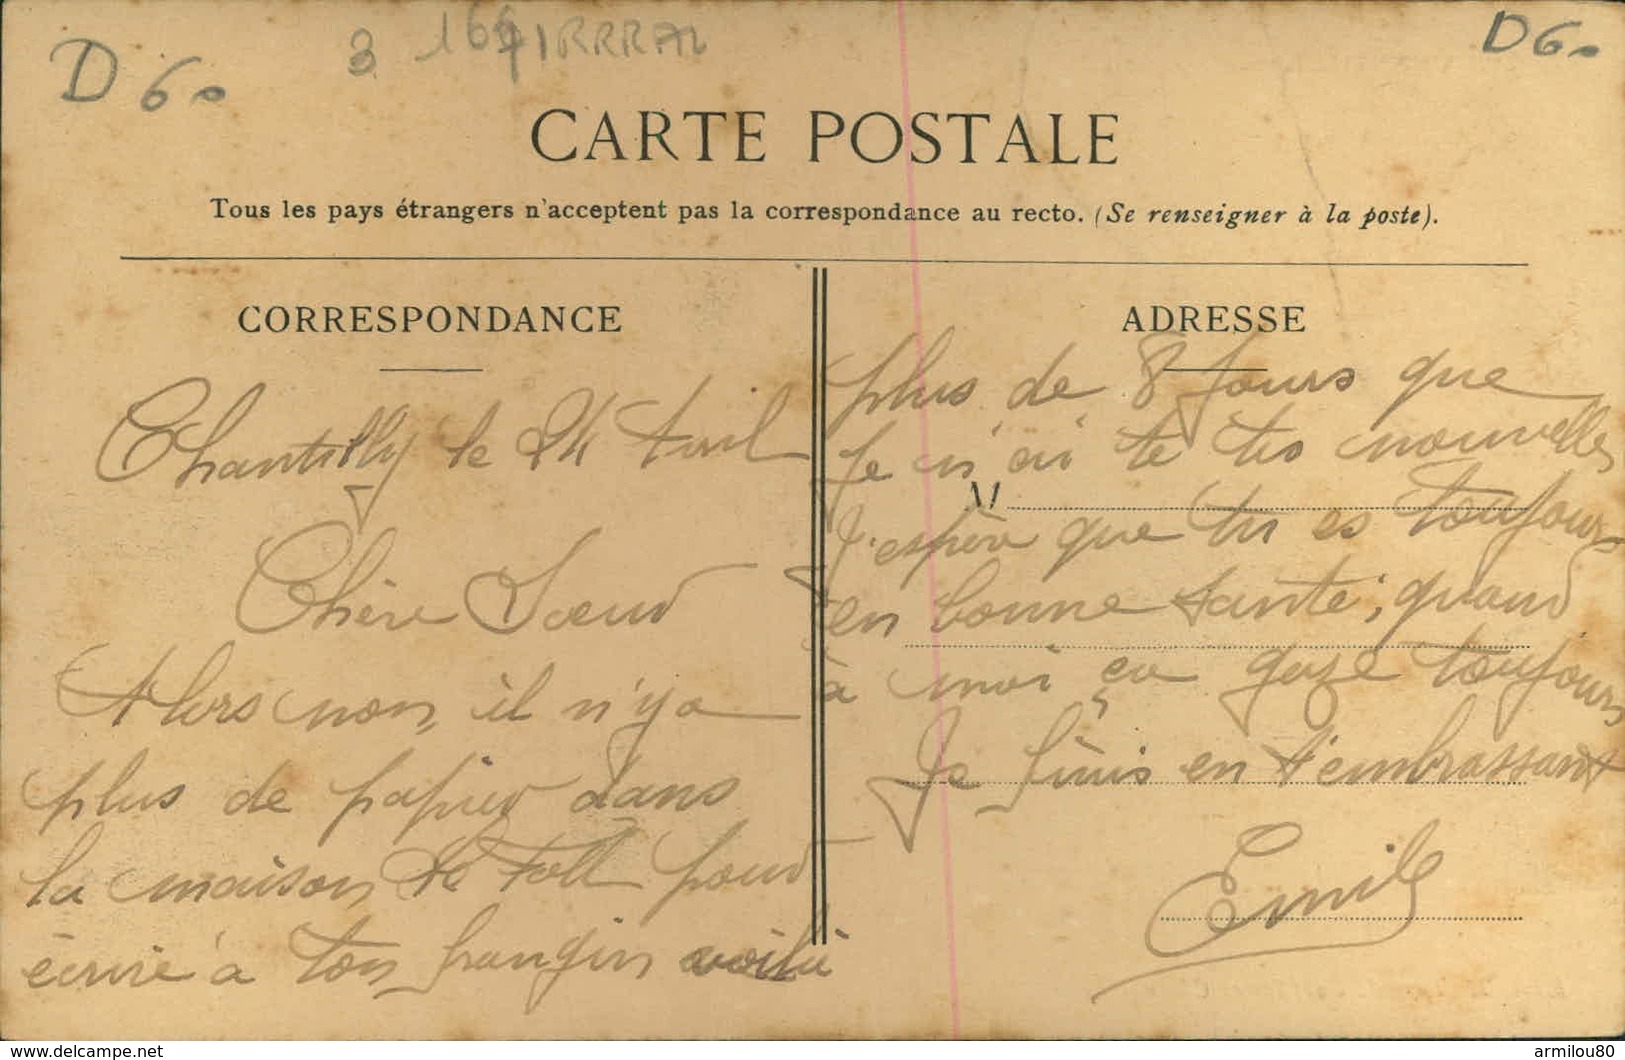 D 60
3
D 60
CARTE POSTALE
Tous les pays étrangers n'acceptent pas la correspondance au recto. (Se renseigner à la poste).
CORRESPONDANCE
Chantilly le 24 Avril
Chère Soeur
Alors non, il n'y a
plus de papier dans
la maison pour
écrire à ton frangin voilà
ADRESSE
plus de 8 jours que
Je n'ai de tes nouvelles
J'espère que tu es toujours
en bonne santé, quand
à moi ça gaze toujours
Je finis en t'embrassant
Emile
www.delcampe.net
armilou80